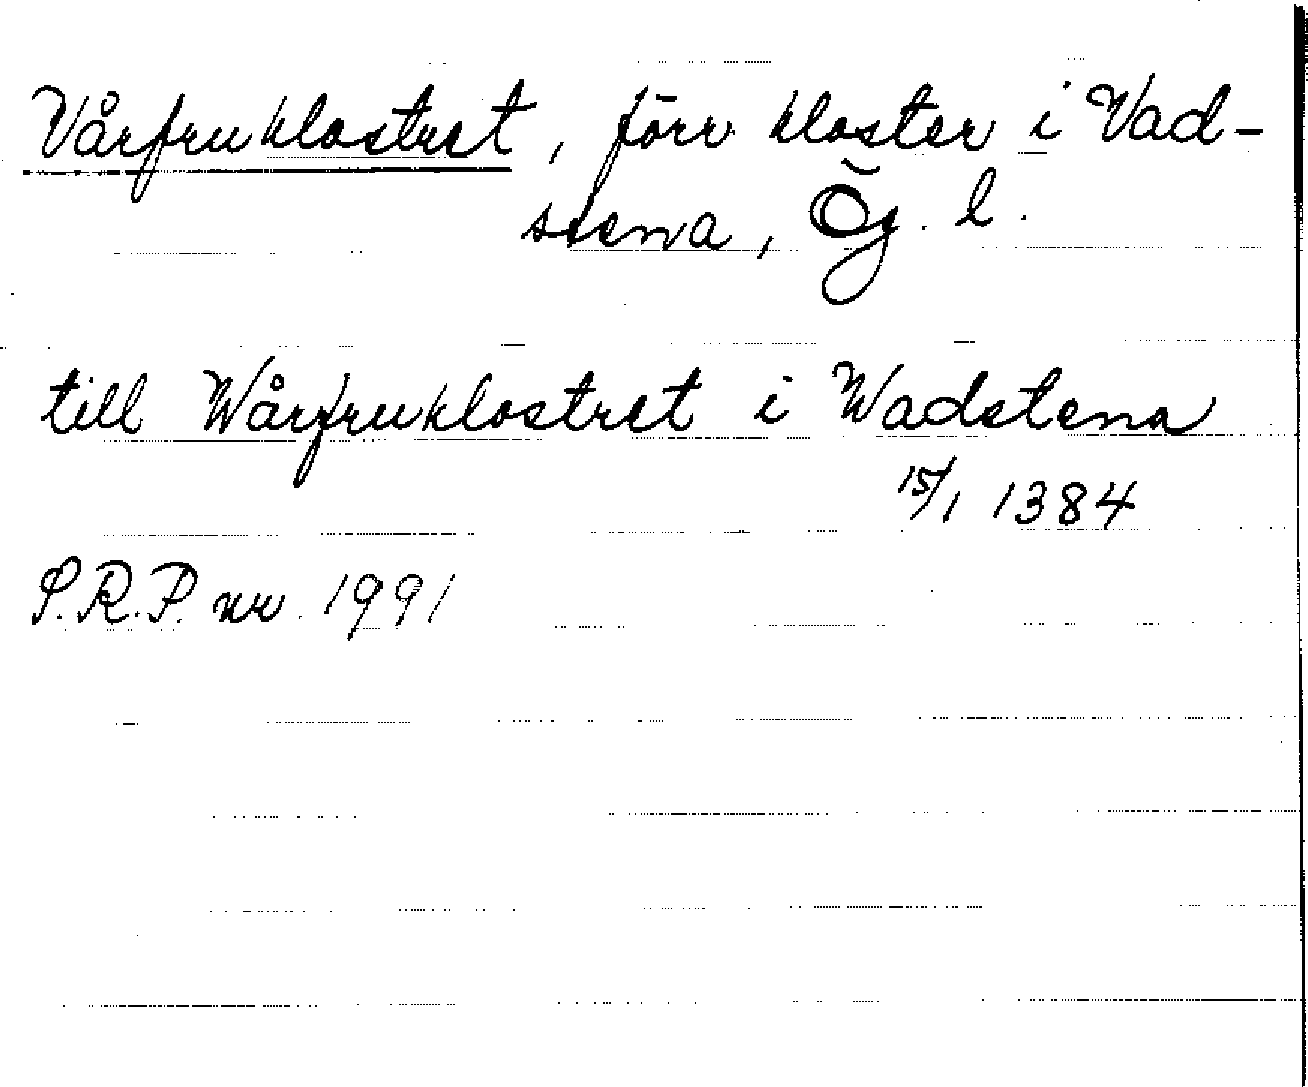 Vårfruklostret, förr kloster i Vad-
stena, Ög. l.
till Wårfruklostret i Wadstena
15/1 1384
S.R.P. nr. 1991